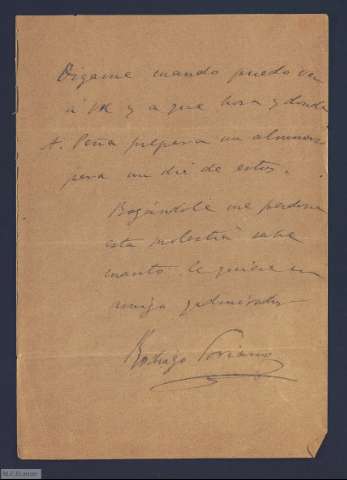 Digame cuando puedo ver
á Vd. y a que hora y donde
A. Peña prepara un almuerzo
para un dia de estos.
Rogándole me perdone
esta molestia sabe
cuanto le quiere su
amigo y admirador
Rodrigo Soriano